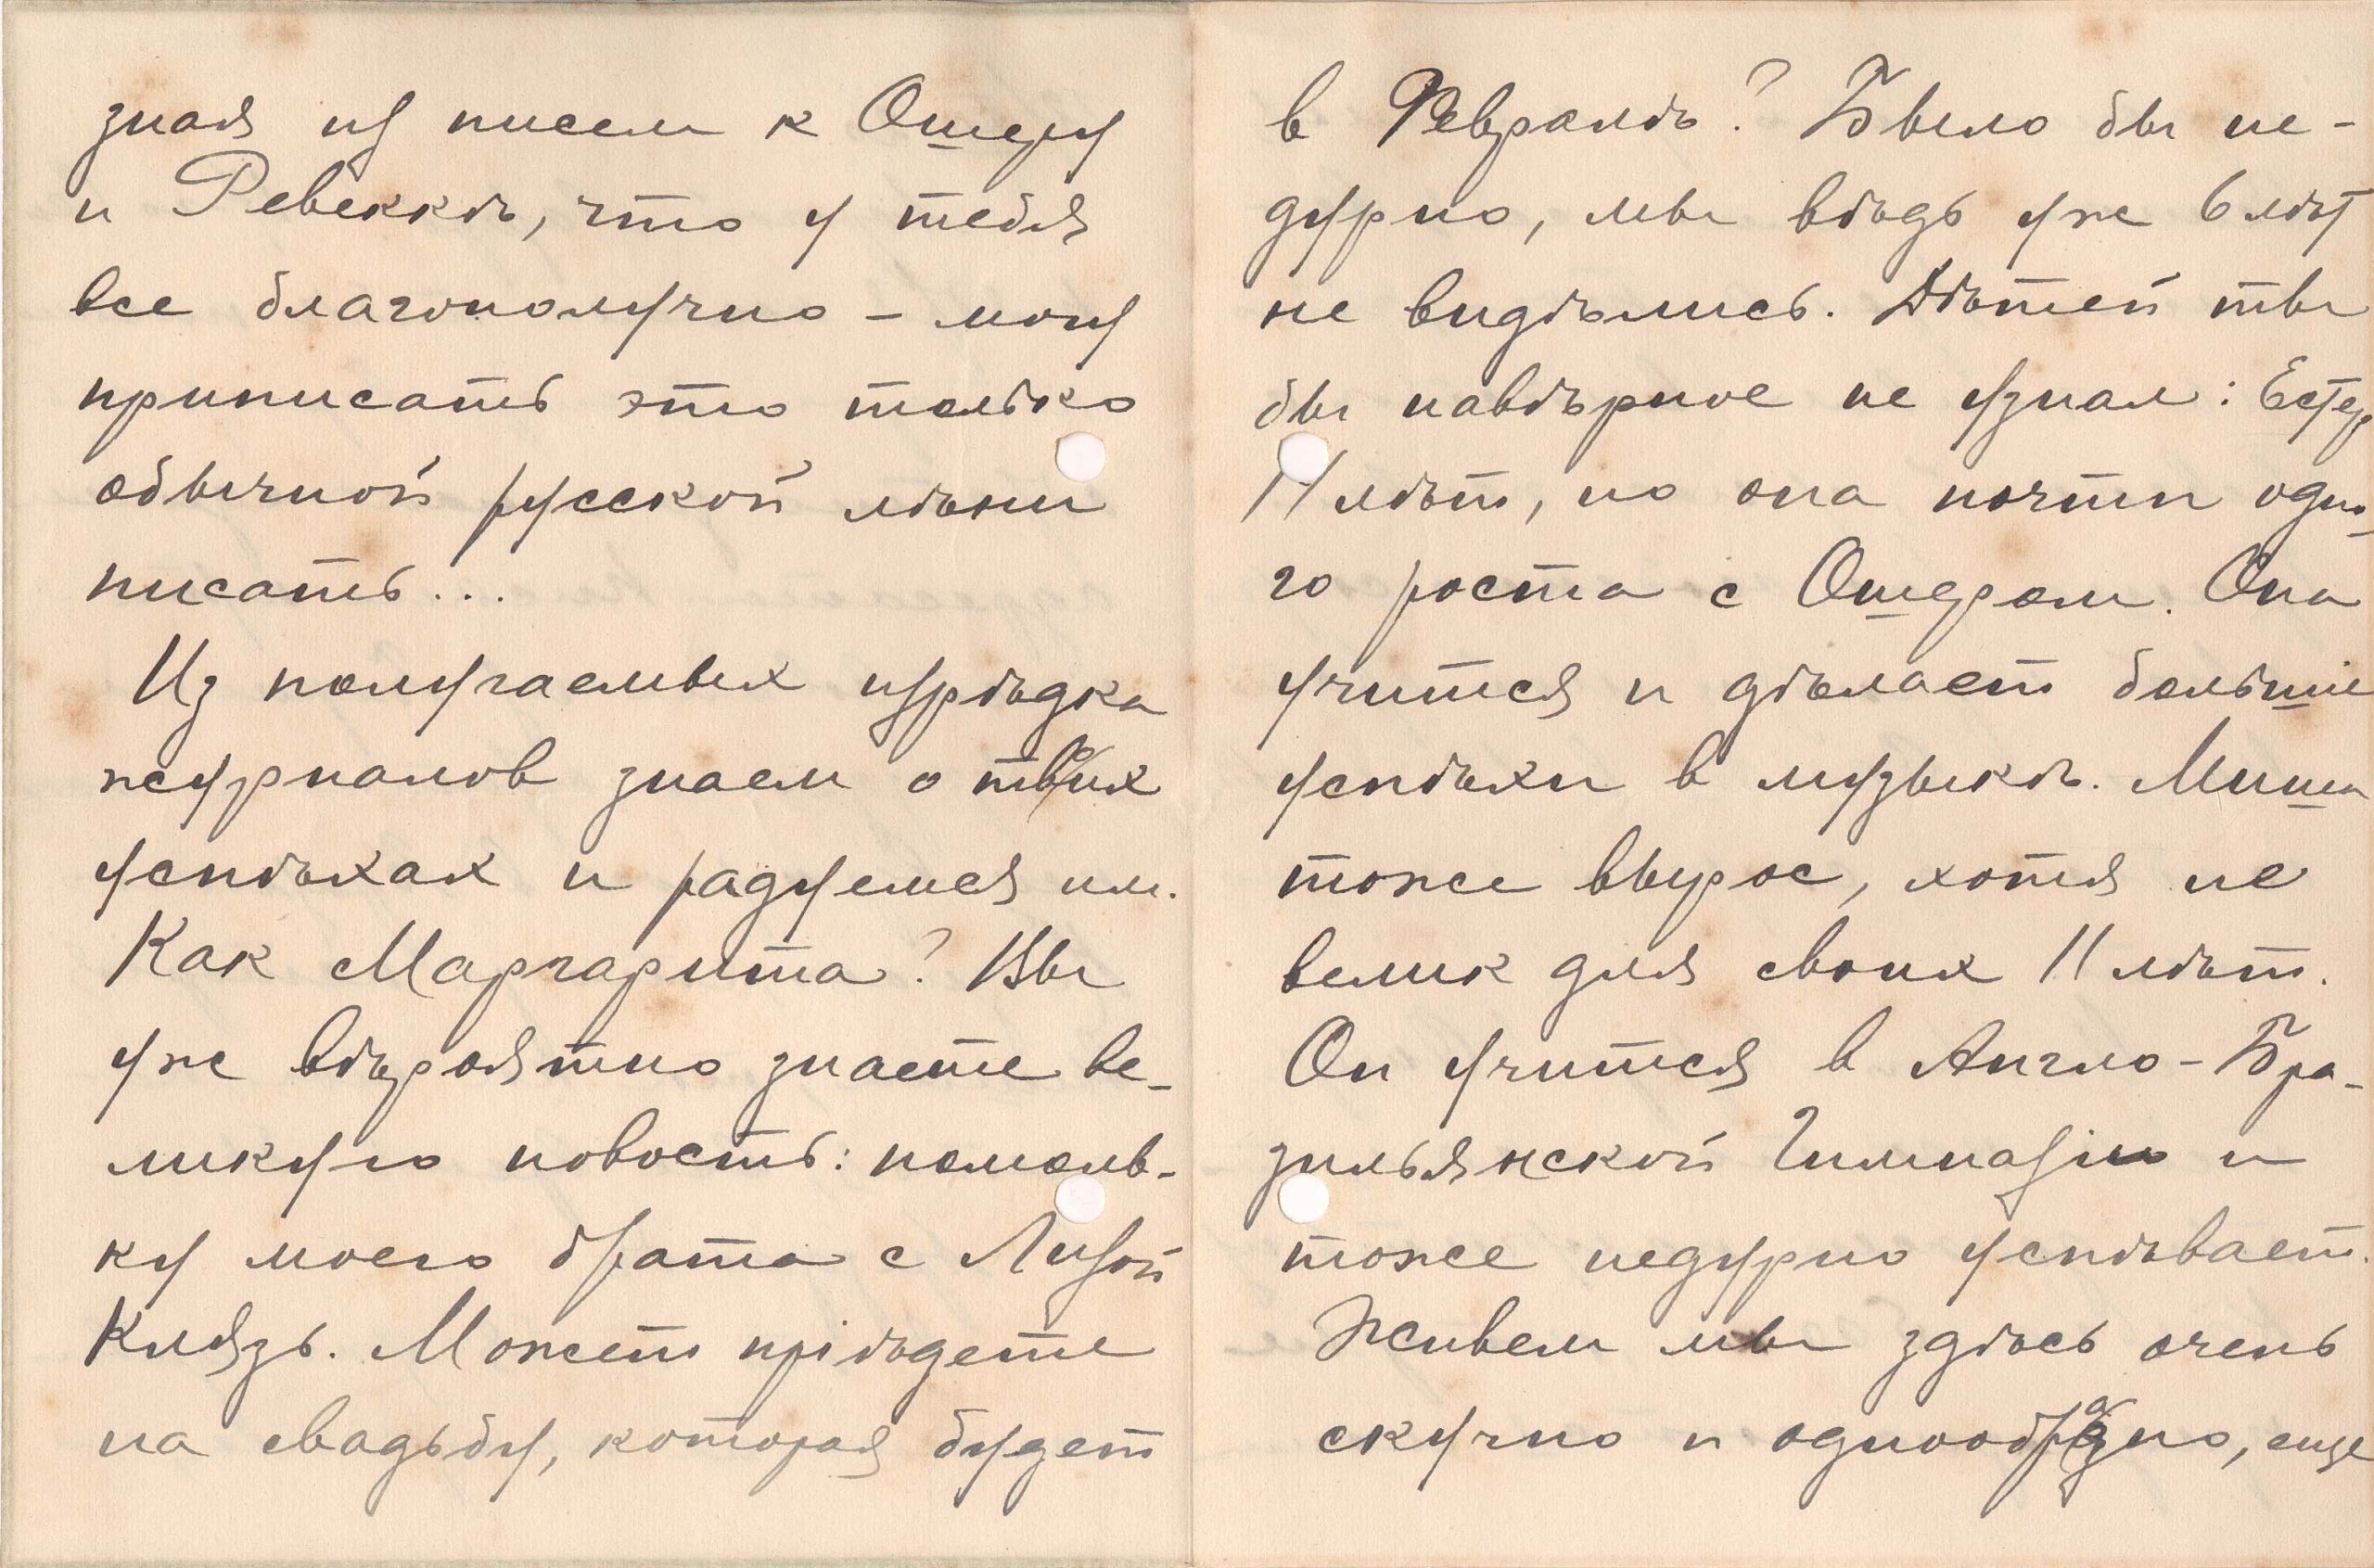 зная из писем к Ошеру
и Ревеккѣ, что у тебя
все благополучно - могу
приписать это только
обычной русской лѣни
писать...
Из получаемых изрѣдка
журналов знаем о твоих
успѣхах и радуемся им.
Как Маргарита? Вы
уже вѣроятно знаете ве-
ликую новость: помолв-
ку моего брата с Лизой
Князь. Может пріѣдете
на свадьбу, которая будет
в Февралѣ? Было бы не-
дурно, мы вѣдь уже 6 лѣт
не видѣлись. Дѣтей ты
бы навѣрное не узнал: Естер
14 лѣт, но она почти одно-
го роста с Ошером. Она
учится и дѣлает большіе
успѣхи в музыкѣ. Миша
тоже вырос, хотя не
велик для своих 11 лѣт.
Он учится в Англо-Бра-
зильянской Гимназіи и
тоже недурно успѣвает.
Живем мы здѣсь очень
скучно и однообразно, еще